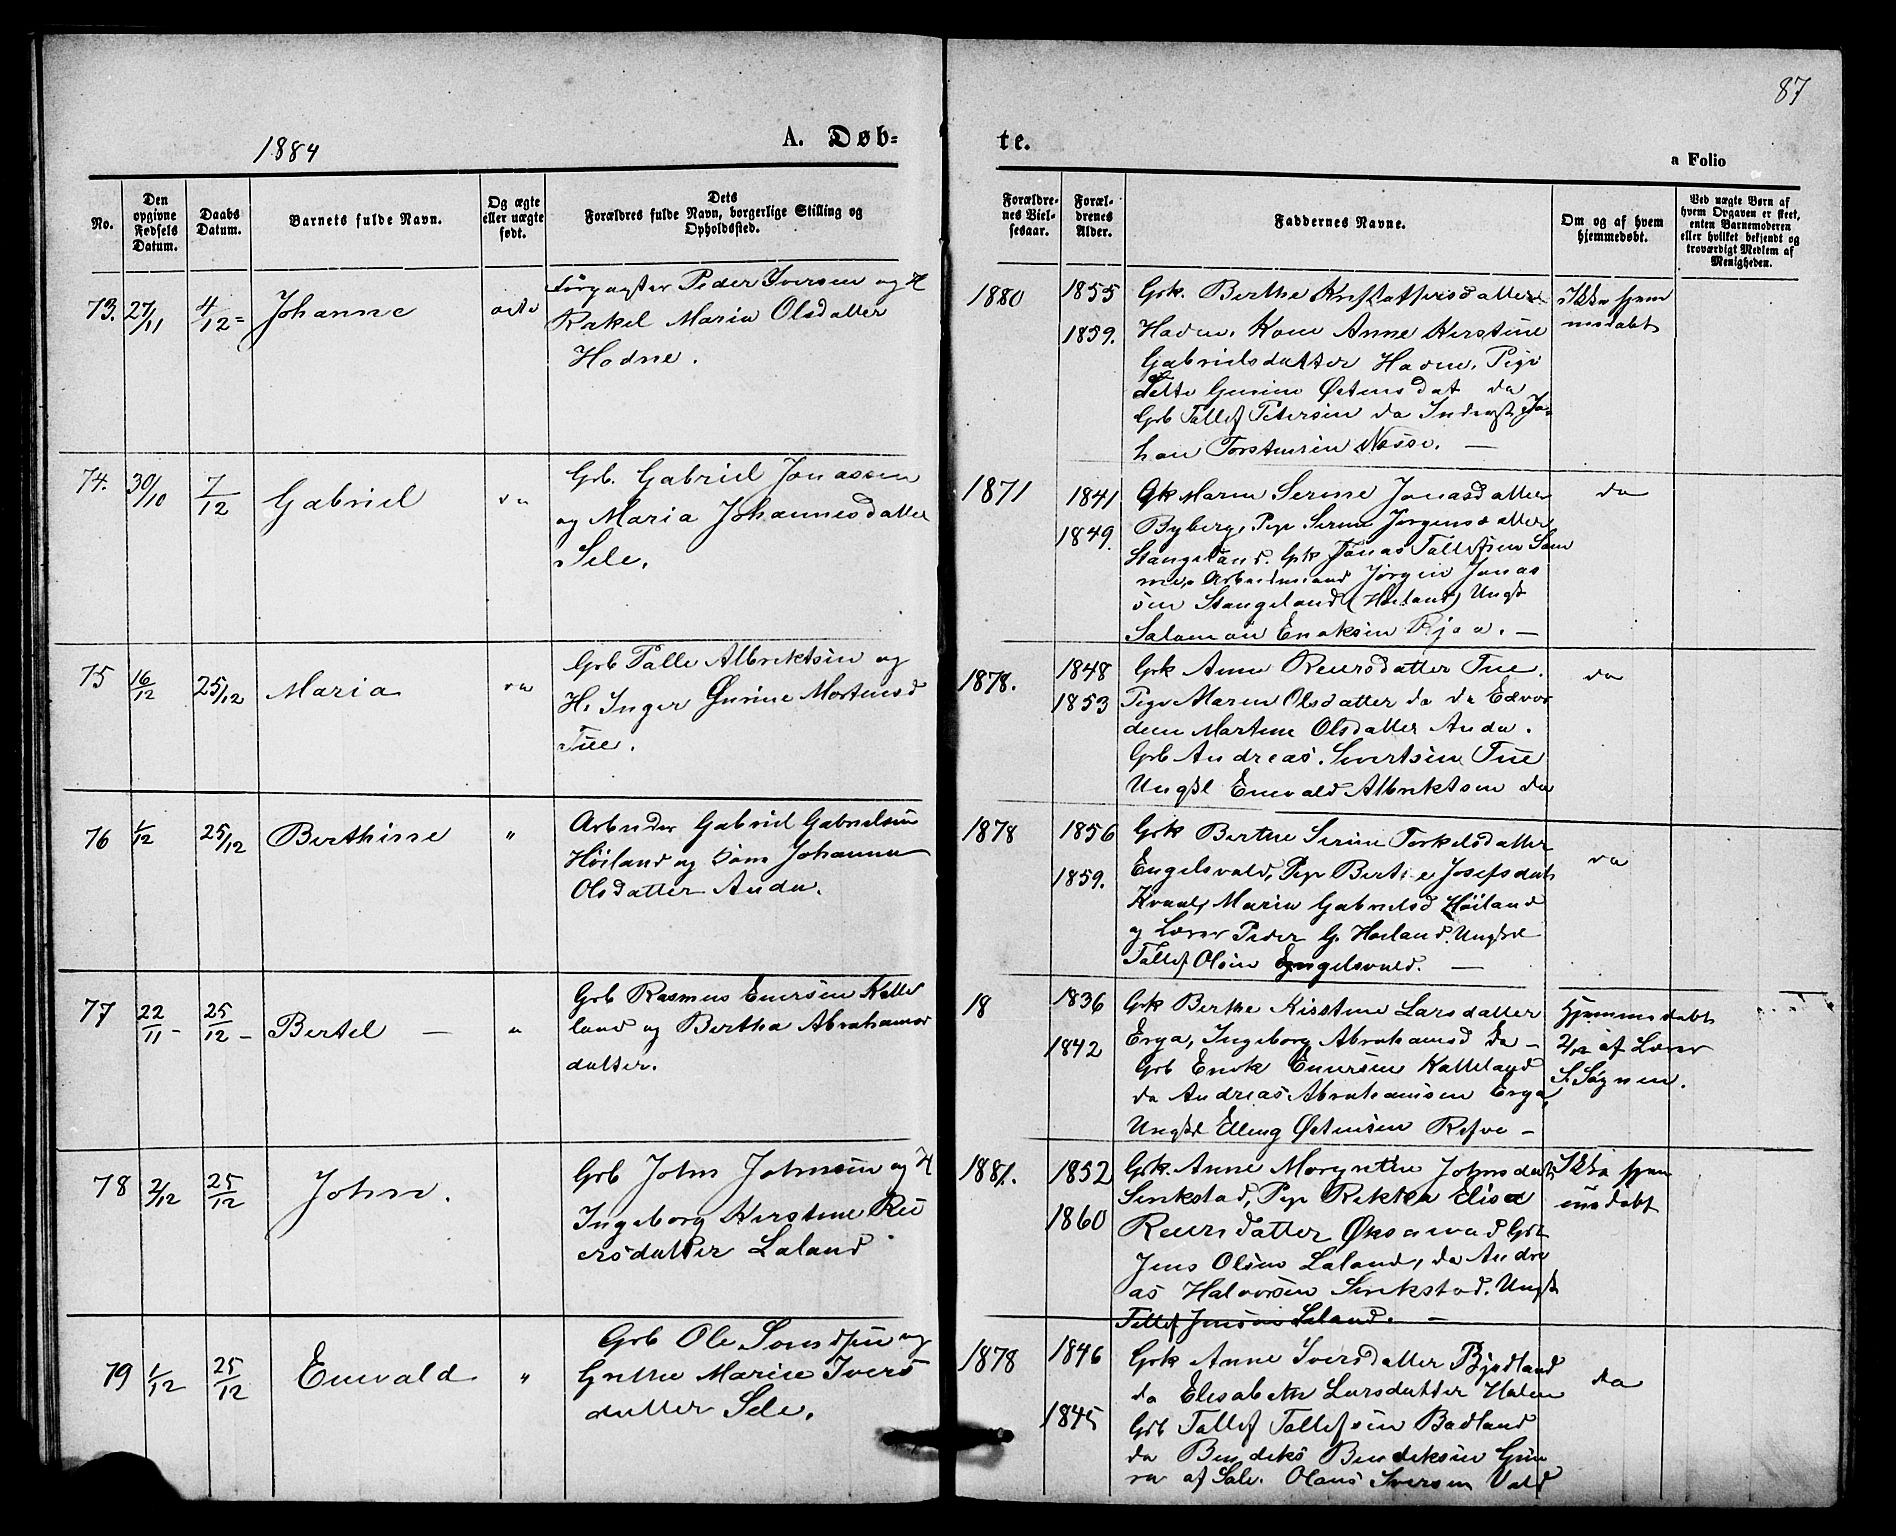 87
1884
A. Døb-
te.
a Folio
No.
Den
opgivne
Fødsels
Datum.
Daabs
Datum.
Barnets fulde Navn.
Og ægte
eller uægte
født.
Dets
Forældres fulde Navn, borgerlige Stilling og
Opholdssted.
Forældre-
nes Viel-
sesaar.
Foræl-
drenes
Alder.
Faddernes Navne.
Om og af hvem
hjemmedøbt.
Ved uægte Børn af
hvem Opgaven er skeet,
enten Barnemoderen
eller hvilket bekjendt og
troværdigt Medlem af
Menigheden.
73. 27/11 4/12 Johanne
Peder Iversen og H
Rakel Maria Olsdatter
Hodne.
1880
1855
1859.
Grk. Berthe
Kone Anne Kirstine
Gabrielsdatter Pige
Gurine Østensdat do
Grb Tollef Petersen do Inderst Jo-
han Torstensen Næsse. —
Ikke hjem
medøbt
74. 30/10 7/12 Gabriel do
Grb. Gabriel Jonassen
og Maria Johannesdatter
Sele.
1871
1841
1849.
Gk Maren Serine Jonasdatter
Byberg, Pige Serine Jørgensdatter
Stangeland. Grk Jonas Tollefsen Som
me, Arbeidsmand Jørgen Jonas
sen Stangeland (Høiland) Ungk
Salomon Enoksen —
do
75 16/12 25/12 Maria do
Grb Tolle Albriktsen og
H. Inger Gurine Mortensd
Tue.
1878.
1848
1853
Grk Anne Reiersdatter Tue.
Pige Maren Olsdatter do do Edvar
dine Martine Olsdatter Anda.
Grb Andreas Sivertsen Tue
Ungkl Enevald Albriktsen do
do
76 1/12 25/12 Berthine "
Arbeider Gabriel Gabrielsen
Høiland og Johanne
Olsdatter Anda.
1878
1856
1859.
Grk Berthe Serine Torkelsdatter
Engelsvold, Pige Josefsdat
Maria Gabrielsd Høiland
og Lærer Peder G. Høiland. Ungkl
Tollef Olsen Engelsvold. —
do
77 22/11 - 25/12 - Bertel — "
Grb Rasmus Enersen Kalle
land og Bertha Abrahams
datter.
18
1836
1842
Grk Berthe Kirstine Larsdatter
Erga, Ingeborg Abrahamsd do -
Grb Enok Enersen Kalleland
do Andreas Abrahamsen Erga,
Ungkl Elling Østensen Refve -
Hjemmedøbt
2/12 af Lærer
78 2/12 25/12 John.
Grb John Johnsen og H
Ingeborg Kirstine Rei
ersdatter Laland
1881.
1852
1860
Grk. Anne Johnsdat
Sirekstad, Pige Elisa
Reiersdatter Øksnevad Grb
Jens Olsen Laland, do Andre
as Halvorsen Sirekstad. Ungk
Tollef Jensen Laland. —
Ikke hjem
medøbt
79 1/12 25/12 Enevald "
Grb Ole og
Grethe Marie Ivers
datter Sele.
1878
1846
1845
Grk Anne Iversdatter
do Elisabeth Larsdatter
Grb Tollef Tollefsen
do Bendiks Bendiksen
af Sele. Olaus Iversen
do